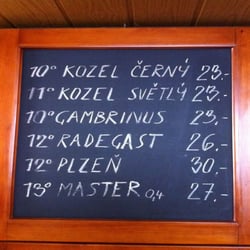 10° KOZEL ČERNÝ 23.-
11° KOZEL SVĚTLÝ 23.-
10° GAMBRINUS 23,-
12° RADEGAST 26,-
12° PLZEŇ 30,-
13° MASTER 0,4 27.-